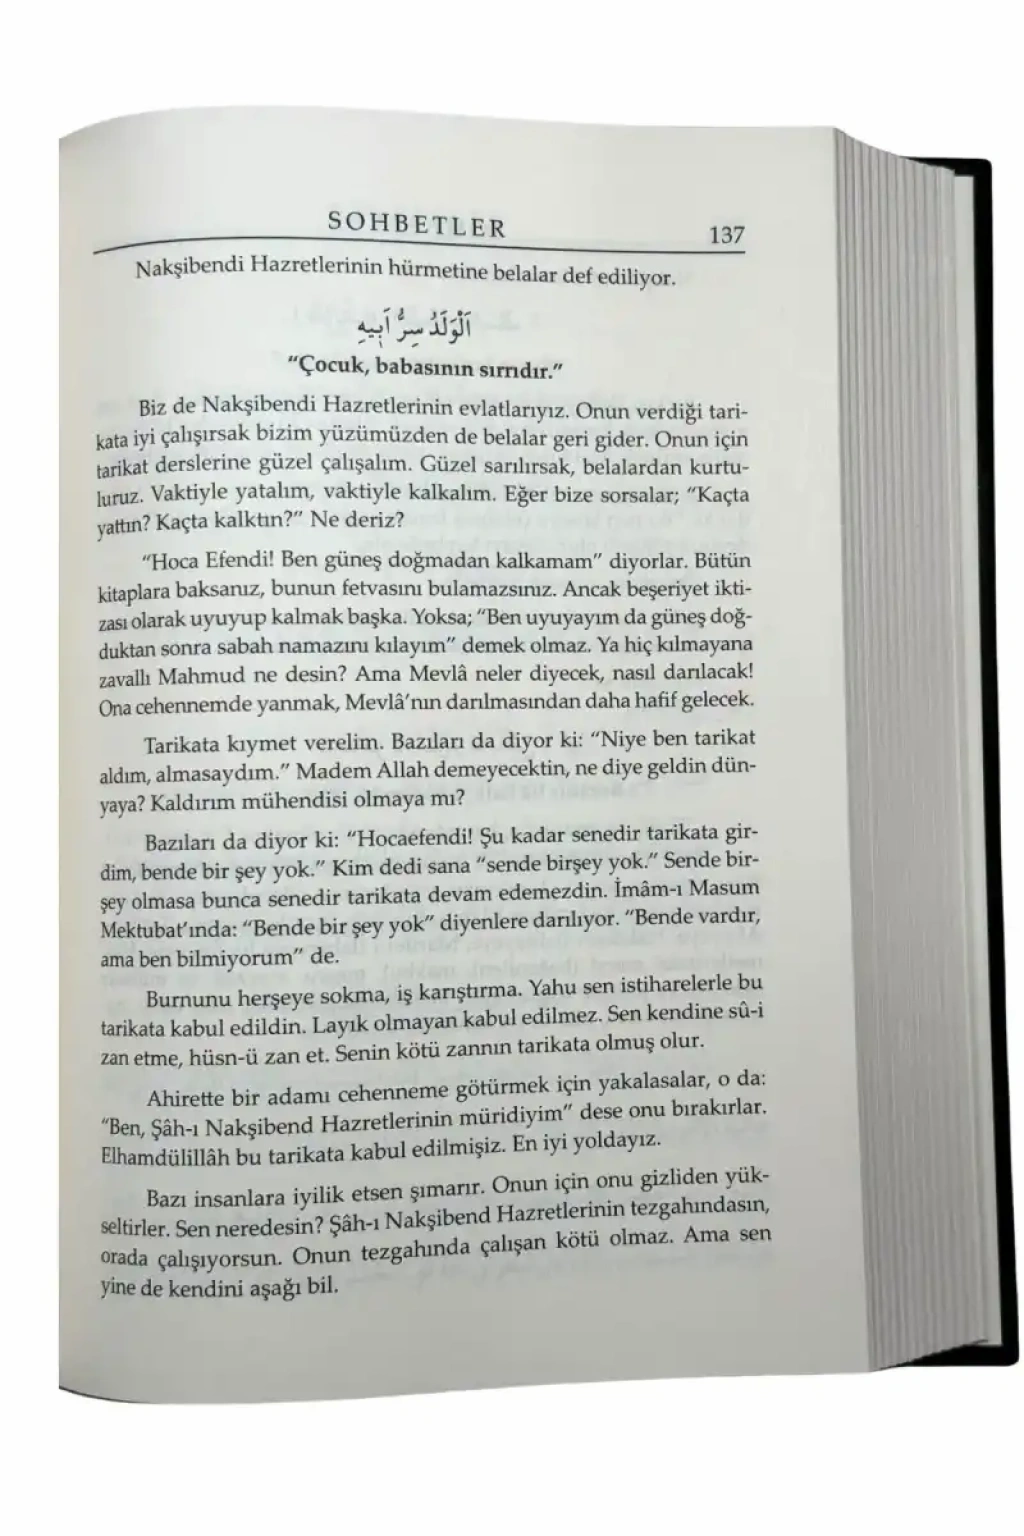 SOHBETLER
137
Nakşibendi Hazretlerinin hürmetine belalar def ediliyor.
اَلْوَلَدُ سِرُّ اَبِيهِ
“Çocuk, babasının sırrıdır.”
Biz de Nakşibendi Hazretlerinin evlatlarıyız. Onun verdiği tari-
kata iyi çalışırsak bizim yüzümüzden de belalar geri gider. Onun için
tarikat derslerine güzel çalışalım. Güzel sarılırsak, belalardan kurtu-
luruz. Vaktiyle yatalım, vaktiyle kalkalım. Eğer bize sorsalar; “Kaçta
yattın? Kaçta kalktın?” Ne deriz?
“Hoca Efendi! Ben güneş doğmadan kalkamam” diyorlar. Bütün
kitaplara baksanız, bunun fetvasını bulamazsınız. Ancak beşeriyet ikti-
zası olarak uyuyup kalmak başka. Yoksa; “Ben uyuyayım da güneş doğ-
duktan sonra sabah namazını kılayım” demek olmaz. Ya hiç kılmayana
zavallı Mahmud ne desin? Ama Mevlâ neler diyecek, nasıl darılacak!
Ona cehennemde yanmak, Mevlâ’nın darılmasından daha hafif gelecek.
Tarikata kıymet verelim. Bazıları da diyor ki: “Niye ben tarikat
aldım, almasaydım.” Madem Allah demeyecektin, ne diye geldin dün-
yaya? Kaldırım mühendisi olmaya mı?
Bazıları da diyor ki: “Hocaefendi! Şu kadar senedir tarikata gir-
dim, bende bir şey yok.” Kim dedi sana “sende birşey yok.” Sende bir-
şey olmasa bunca senedir tarikata devam edemezdin. İmâm-ı Masum
Mektubat’ında: “Bende bir şey yok” diyenlere darılıyor. “Bende vardır,
ama ben bilmiyorum” de.
Burnunu herşeye sokma, iş karıştırma. Yahu sen istiharelerle bu
tarikata kabul edildin. Layık olmayan kabul edilmez. Sen kendine sû-i
zan etme, hüsn-ü zan et. Senin kötü zannın tarikata olmuş olur.
Ahirette bir adamı cehenneme götürmek için yakalasalar, o da:
“Ben, Şâh-ı Nakşibend Hazretlerinin müridiyim” dese onu bırakırlar.
Elhamdülillâh bu tarikata kabul edilmişiz. En iyi yoldayız.
Bazı insanlara iyilik etsen şımarır. Onun için onu gizliden yük-
seltirler. Sen neredesin? Şâh-ı Nakşibend Hazretlerinin tezgahındasın,
orada çalışıyorsun. Onun tezgahında çalışan kötü olmaz. Ama sen
yine de kendini aşağı bil.